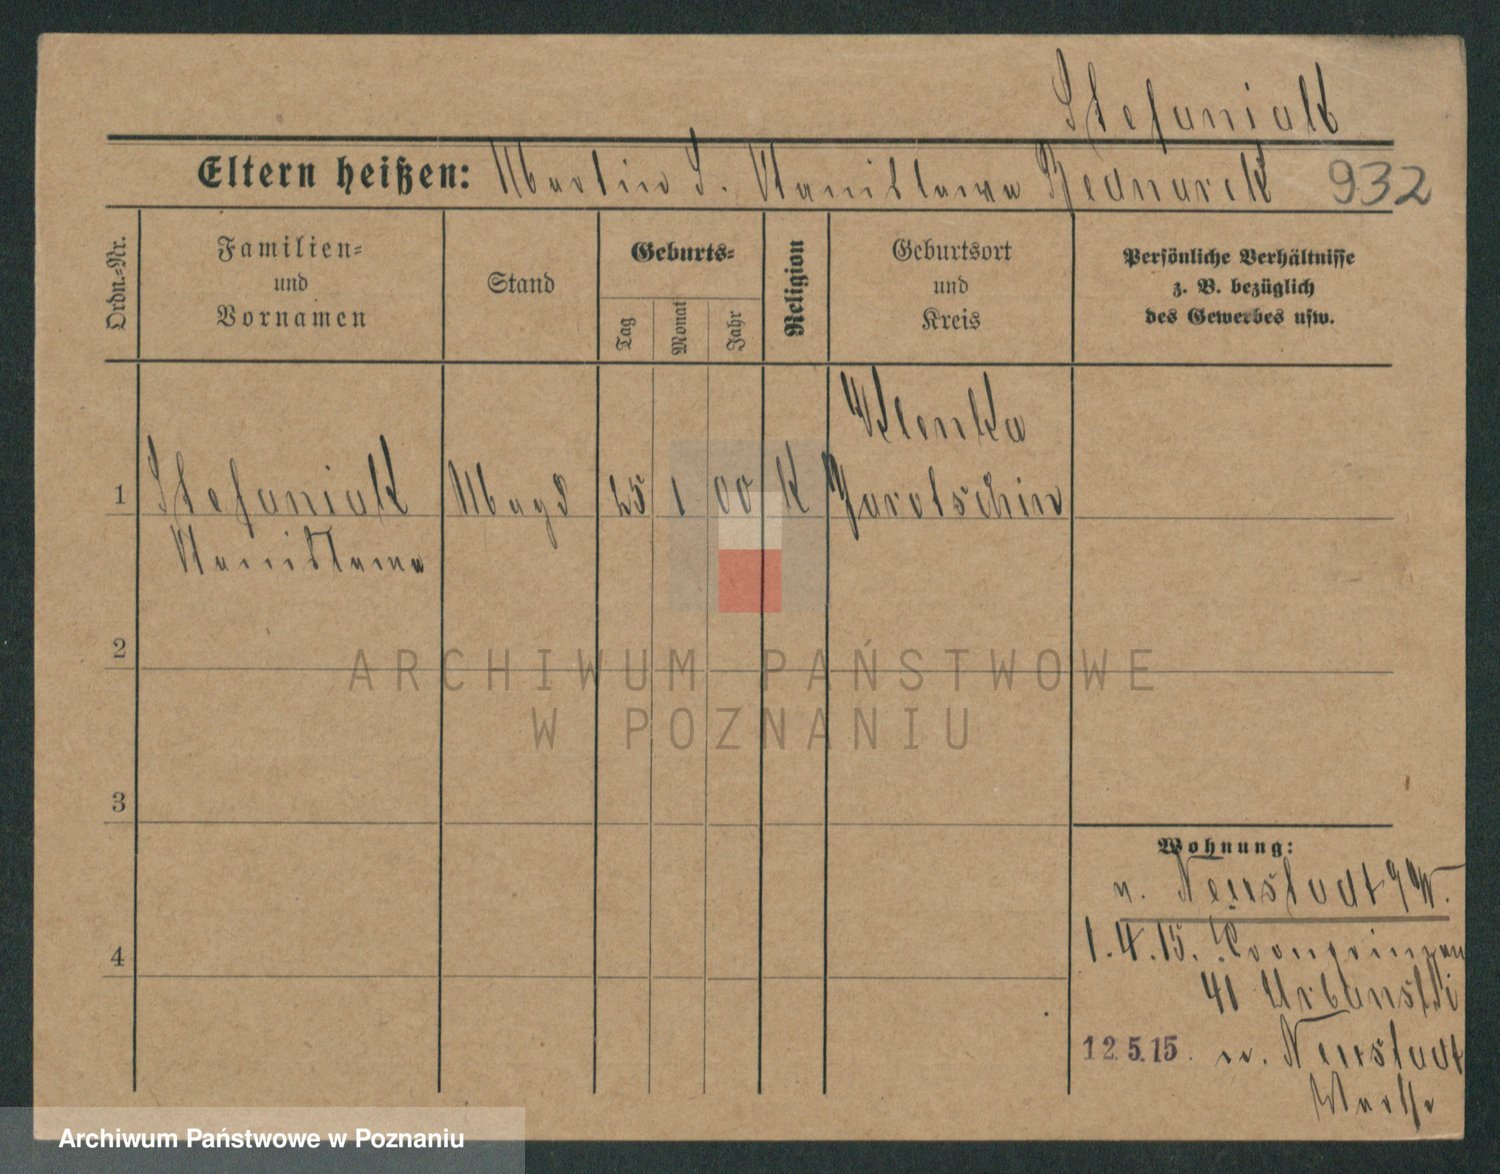 Stefaniak
Eltern heißen: Martin S. Stanislawa Bednarek 932
Ordn.-Nr.
Familien-
und
Vornamen
Stand
Geburts-
Tag
Monat
Jahr
Religion
Geburtsort
und
Kreis
Persönliche Verhältnisse
z. B. bezüglich
des Gewerbes usw.
Klenka
1 Stefaniak Magd 25 1 00 K Jarotschin
Stanislawa
2
ARCHIWUM PAŃSTWOWE
W POZNANIU
3
Wohnung:
v. Neustadt a/W.
1.4.15. Kronprinzen
41 Urbanski
4
12.5.15. n. Neustadt
Warthe
Archiwum Państwowe w Poznaniu